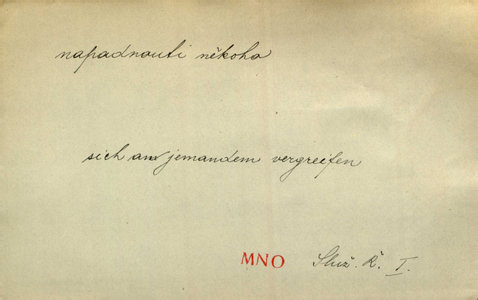 napadnouti někoho
sich an jemandem vergreifen
MNO Služ. Ř. I.